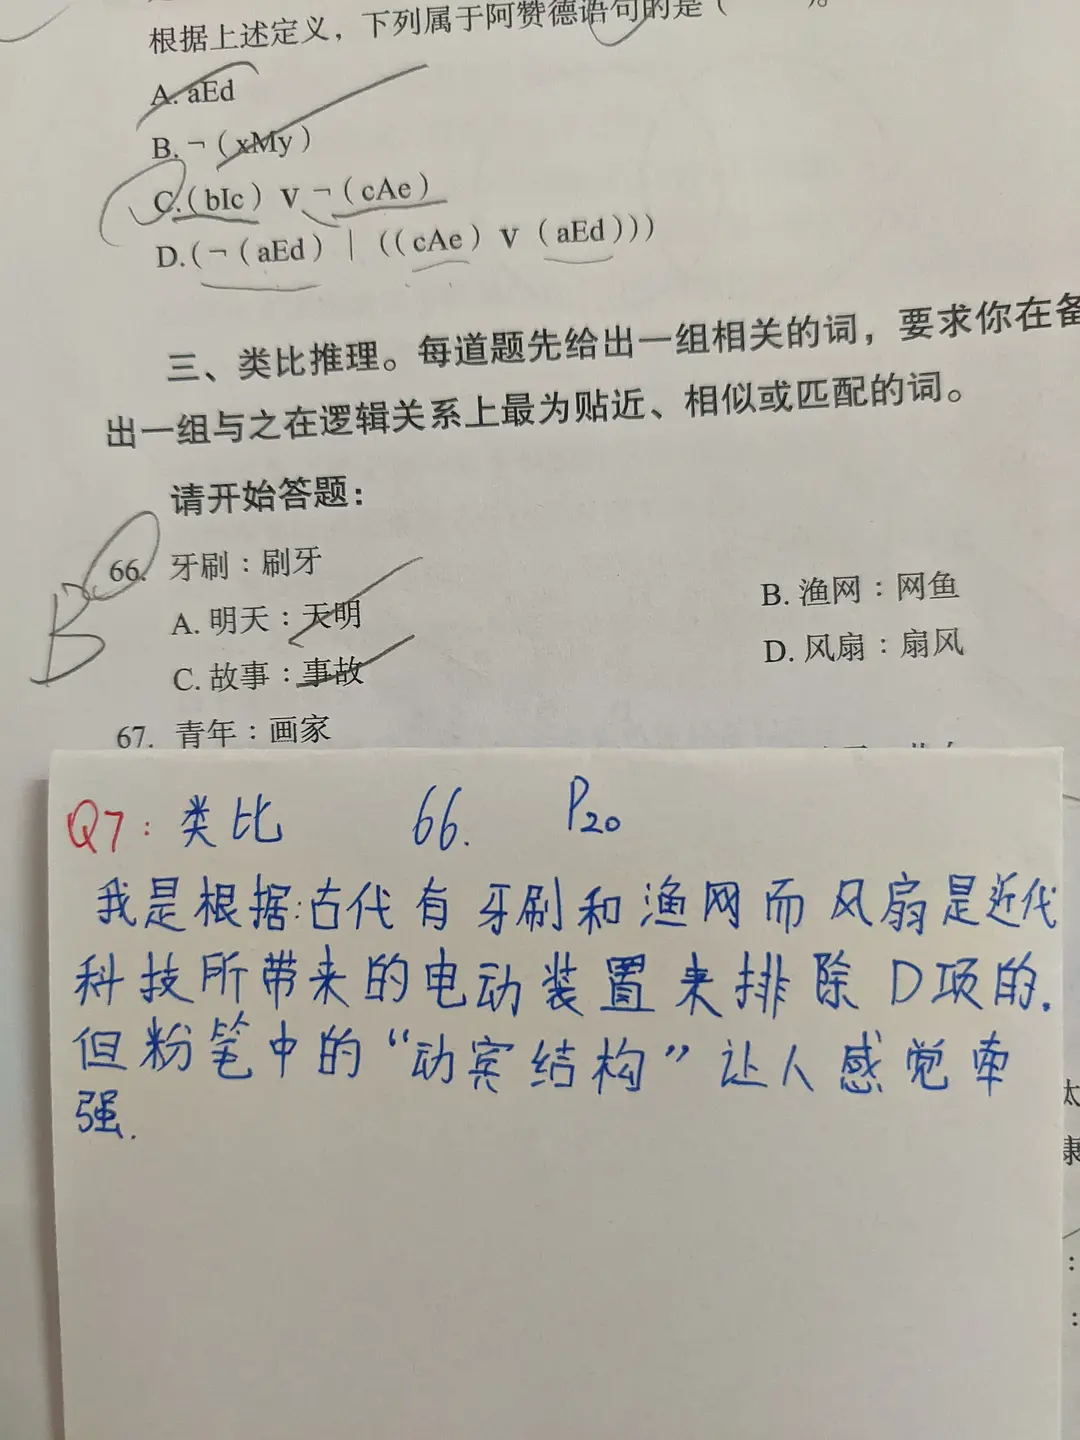 根据上述定义，下列属于阿赞德语句的是（　　）。
A. aEd
B. ¬（xMy）
C.（bIc）∨ ¬（cAe）
D.（¬（aEd）｜（（cAe）∨（aEd）））
三、类比推理。每道题先给出一组相关的词，要求你在备
出一组与之在逻辑关系上最为贴近、相似或匹配的词。
请开始答题：
B
66. 牙刷：刷牙
A. 明天：天明
B. 渔网：网鱼
C. 故事：事故
D. 风扇：扇风
67. 青年：画家
Q7：类比 66. P20
我是根据:古代有牙刷和渔网而风扇是近代
科技所带来的电动装置来排除D项的.
但粉笔中的“动宾结构”让人感觉牵
强.
太
康
：
：